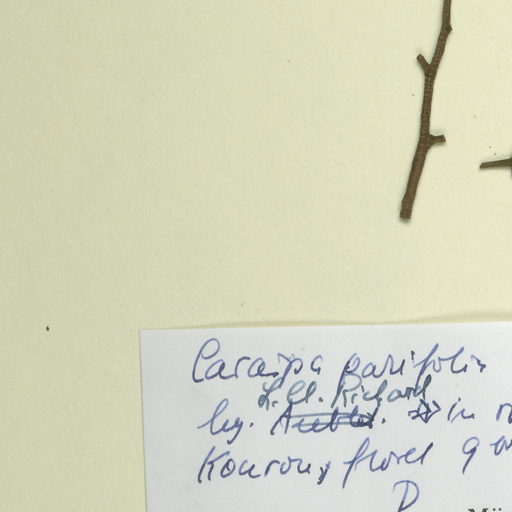 Caraipa parifolia
L. Cl. Richard
leg. Aublet. in
Kourou, flores
D